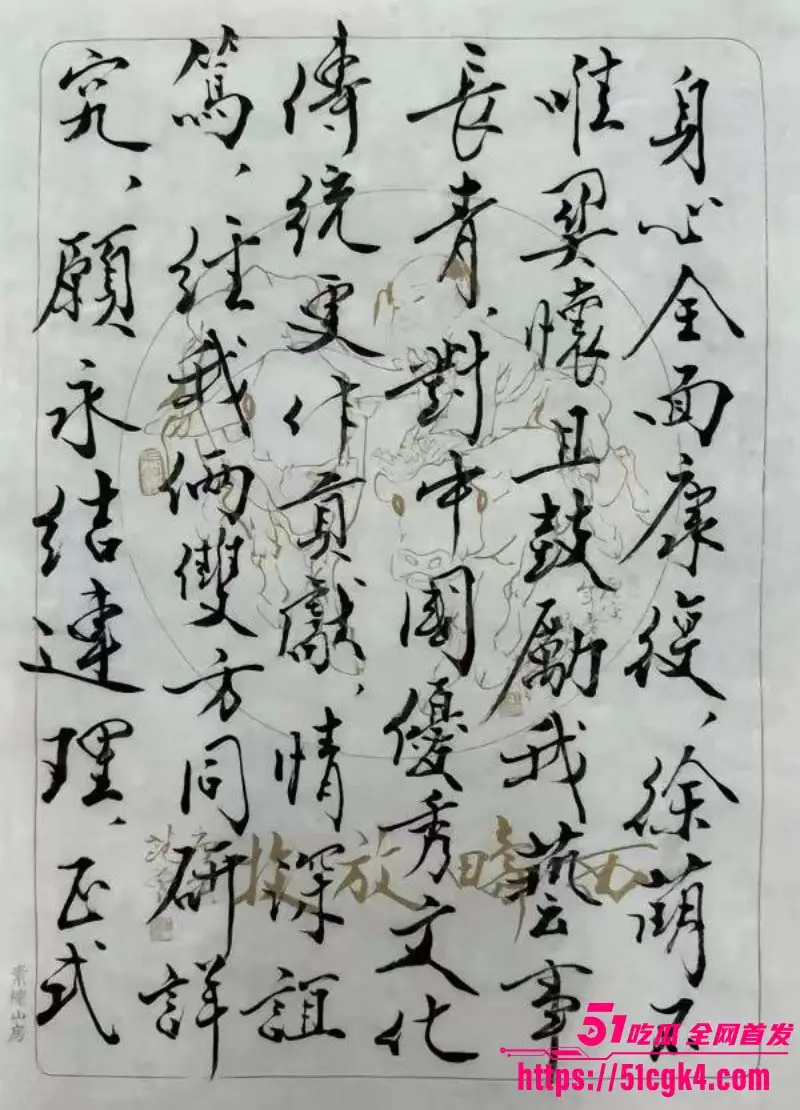 身心全面康復，徐萌不
唯興懷且鼓勵我藝事
長青，對中國優秀文化
傳統更作貢獻，情深誼
篤，經我倆雙方同研詳
究，願永結連理，正式
西疇放牧
素縑山房
51吃瓜 全网首发
https://51cgk4.com